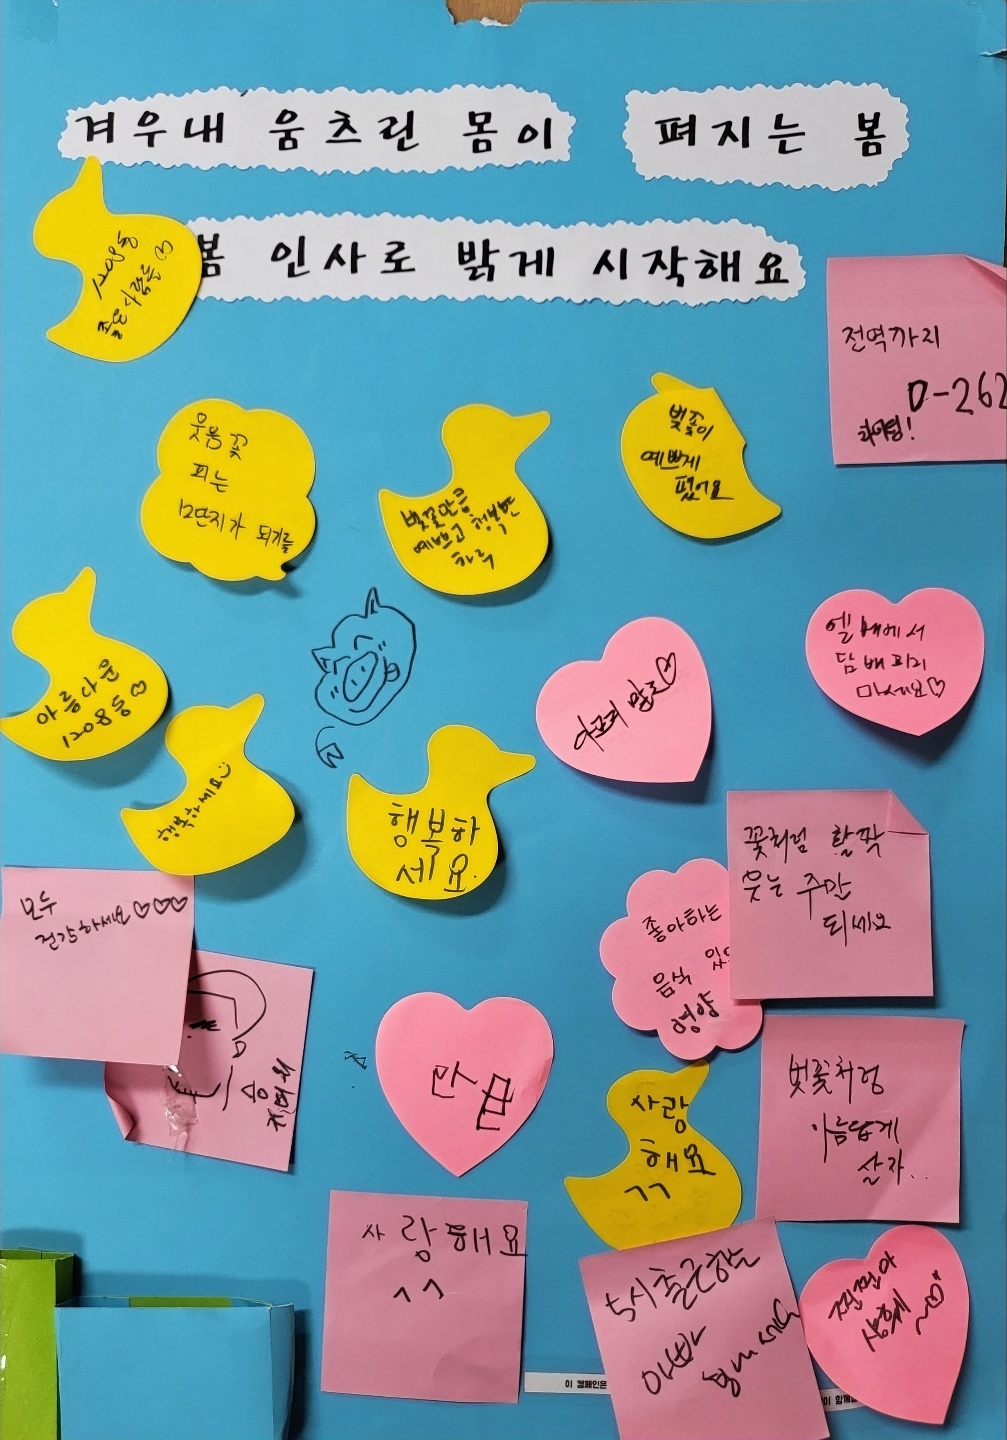 겨우내 움츠린 몸이 펴지는 봄
봄 인사로 밝게 시작해요
1208동
좋은사람들♡
전역까지
D-262
화이팅!
웃음꽃
피는
12단지가 되기를
벚꽃만큼
예쁘고 행복한
하루
벚꽃이
예쁘게
폈어요
아름다운
1208동♡
행복하세요
행복하
세요
엘베에서
담배피지
마세요♡
모두
건강하세요♡♡♡
좋아하는
음식
꽃처럼 활짝
웃는 주말
되세요
사랑
해요
ㄱㄱ
벚꽃처럼
아름답게
살자..
사랑해요
ㄱㄱ
5시출근하는
아빠
이 캠페인은